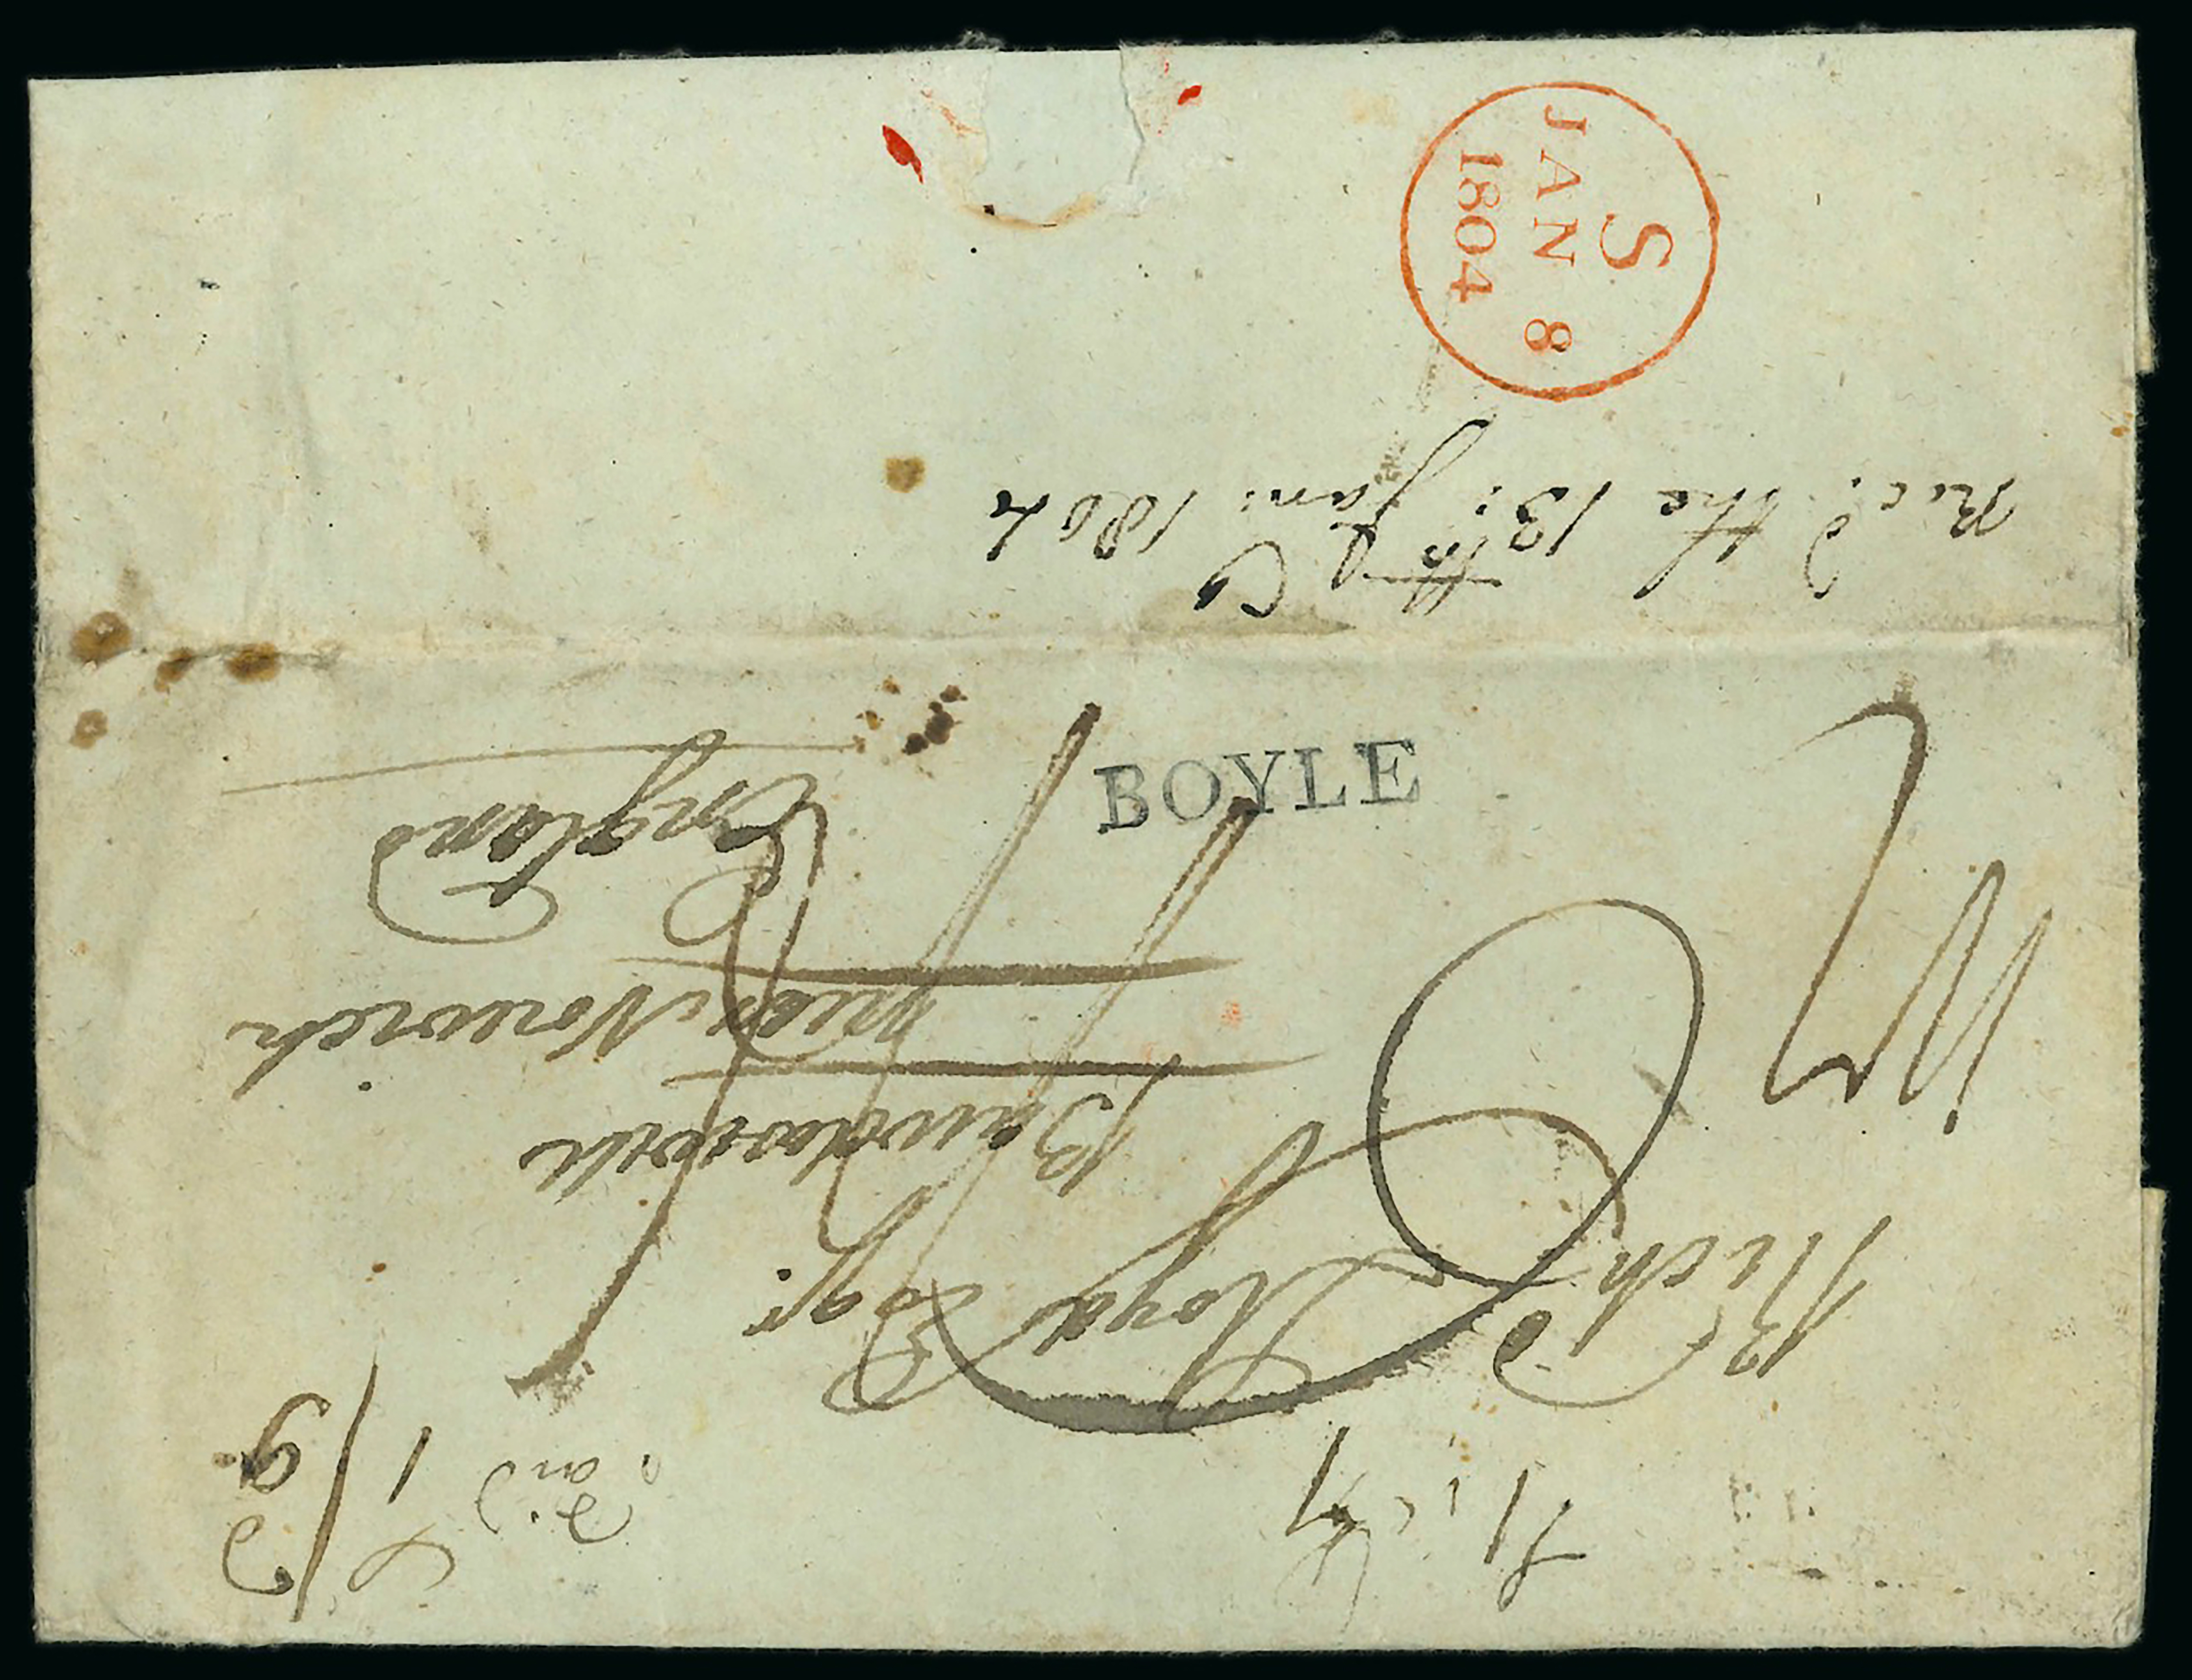 S
JAN 8
1804
Rec.d the 13.th Jan: 1804
BOYLE
Rich.d Lloyd Esqr.
Bawdeswell
near Norwich
England
1/9